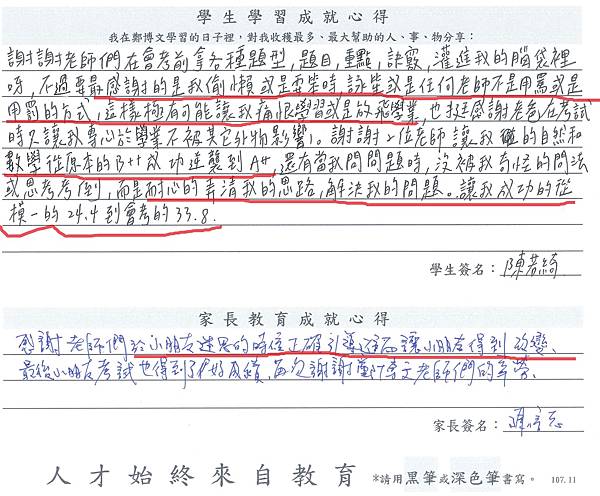 學生學習成就心得
我在鄭博文學習的日子裡，對我收穫最多、最大幫助的人、事、物分享：
謝謝老師們在會考前拿各種題型，題目，重點，訣竅，灌進我的腦袋裡
呀，不過要最感謝的是我偷懶或是耍笨時，詠笙或是任何老師不是用罵或是
用罰的方式，這樣極有可能讓我痛恨學習或是放飛學業，也挺感謝老爸在考試
時久讓我專心於學業不被其它外物影響)。謝謝2位老師讓我的自然和
數學從原本的B++成功逆襲到A++，還有當我問問題時，沒被我奇怪的問法
或思考考倒，而是耐心的弄清我的思路，解決我的問題。讓我成功的從
模一的24.4到會考的33.8.
學生簽名：陳若綺
家長教育成就心得
感謝老師們於小朋友迷思的時候正確引導進而讓小朋友得到改變、
最後小朋友考試也得到了好成績，再次謝謝鄭博文老師們的辛勞。
家長簽名：
人才始終來自教育
*請用黑筆或深色筆書寫。 107.11